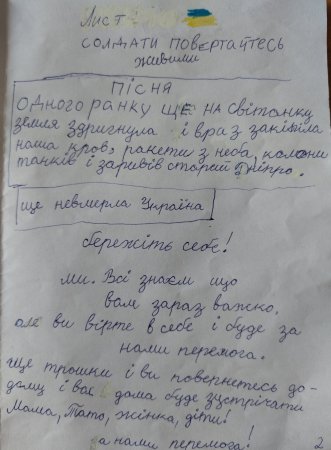 Лист
СОЛДАТИ ПОВЕРТАЙТЕСЬ
живими
ПІСНЯ
ОДНОГО РАНКУ ЩЕ НА СВІТАНКУ
земля здригнула і враз закіпіла
наша кров, ракети з неба, колони
танків і заривів старий Дніпро.
ще невмерла Україна
бережіть себе!
ми. Всі знаєм що
вам зараз важко,
але ви вірте в себе і буде за
нами перемога.
ще трошки і ви повернетесь до-
дому і вас дома буде зустрічати
Мама, Тато, жінка, діти!
за нами перемога!
2